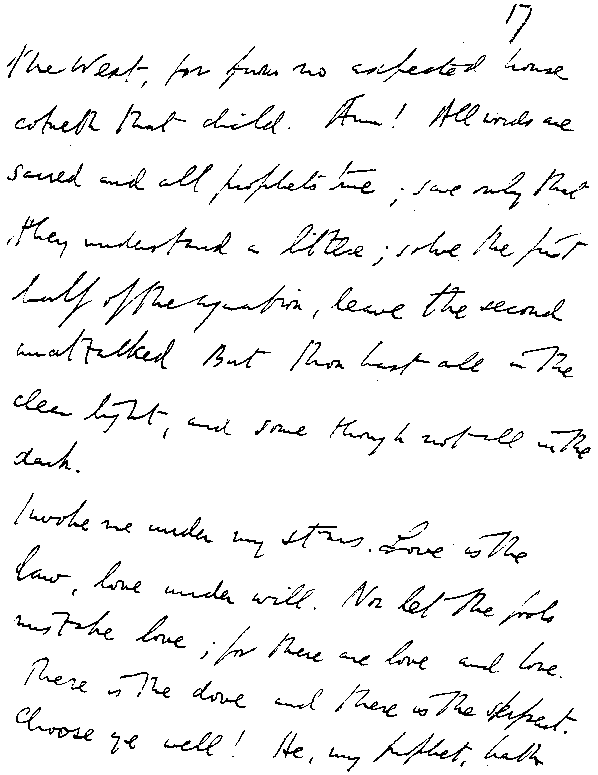 17
the West, for from no expected house
cometh that child. Aum! All words are
sacred and all prophets true; save only that
they understand a little; solve the first
half of the equation, leave the second
unattacked But thou hast all in the
clear light, and some though not all in the
dark.
Invoke me under my stars. Love is the
law, love under will. Nor let the fools
mistake love; for there are love and love.
There is the dove and there is the serpent.
Choose ye well! He, my prophet, hath